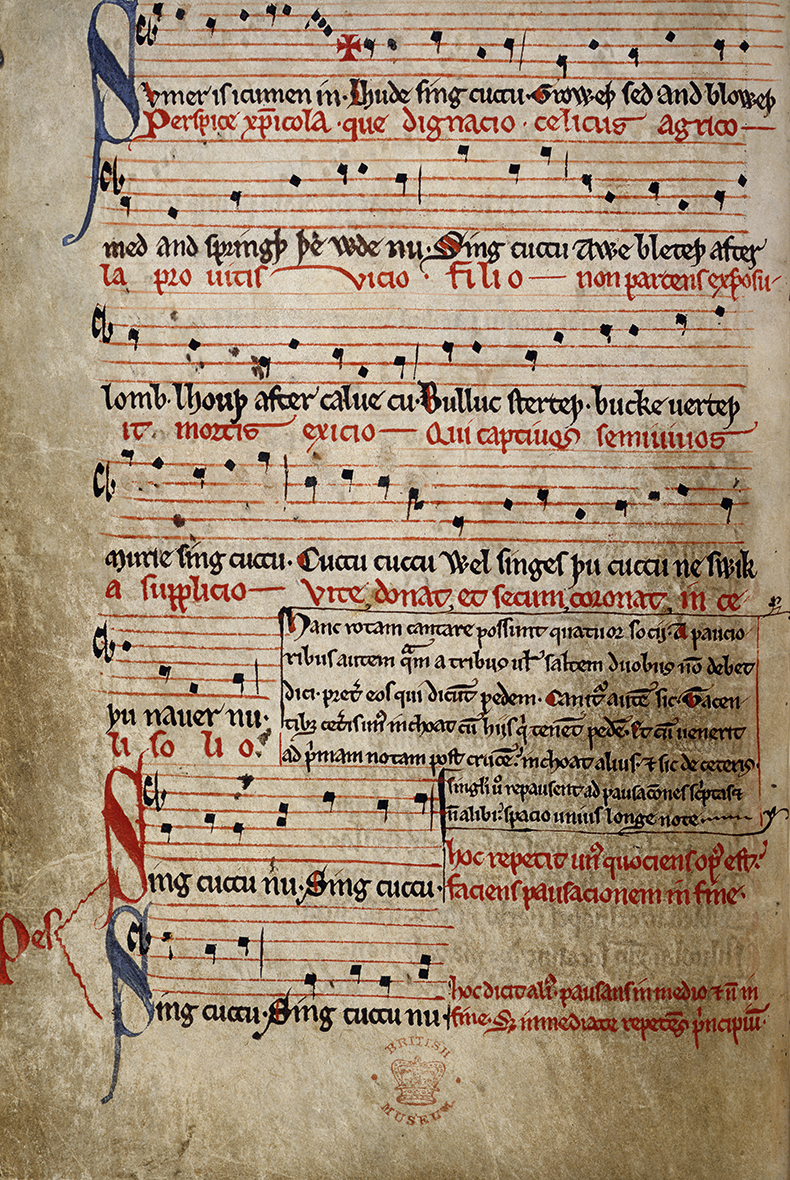 Svmer is icumen in· Lhude sing cuccu· Groweþ sed and bloweþ
Perspice xp̄icola· que dignacio· celicus agrico
med and springþ þe wde nu· Sing cuccu Awe bleteþ after
la pro uitis vicio· filio non parcens exposu
lomb· lhouþ after calue cu· Bulluc sterteþ· bucke uerteþ
it mortis exicio Qui captiuos semiuiuos
murie sing cuccu· Cuccu cuccu Wel singes þu cuccu ne swik
a supplicio Vite donat et secum coronat in ce
þu nauer nu·
li solio·
Hanc rotam cantare possunt quatuor socij· A paucio
ribus autem qᵃm a tribus ul' saltem duobus nō debet
dici· pret̄ eos qui dicūt pedem· Canit᷑ autē sic· Tacen
tibꝫ cet̄is unꝰ inchoat cū hijs qⁱ tenēt pedē· Et cū uenerit
ad p̄mam notam post crucē· inchoat alius· ⁊ sic de ceteris·
singl'i u̾ repausent ad pausacōnes sc̾ptas ⁊
nō alibi· spacio unius longe note
Sing cuccu nu· Sing cuccu·
hoc repetit unꝰ quociens opꝰ est·
faciens pausacionem in fine·
Pes
Sing cuccu· Sing cuccu nu·
hoc dicit aliꝰ· pausans in medio ⁊ nō in
fine· Sꝫ inmediate repetēs p̾ncipiū·
BRITISH
MUSEUM